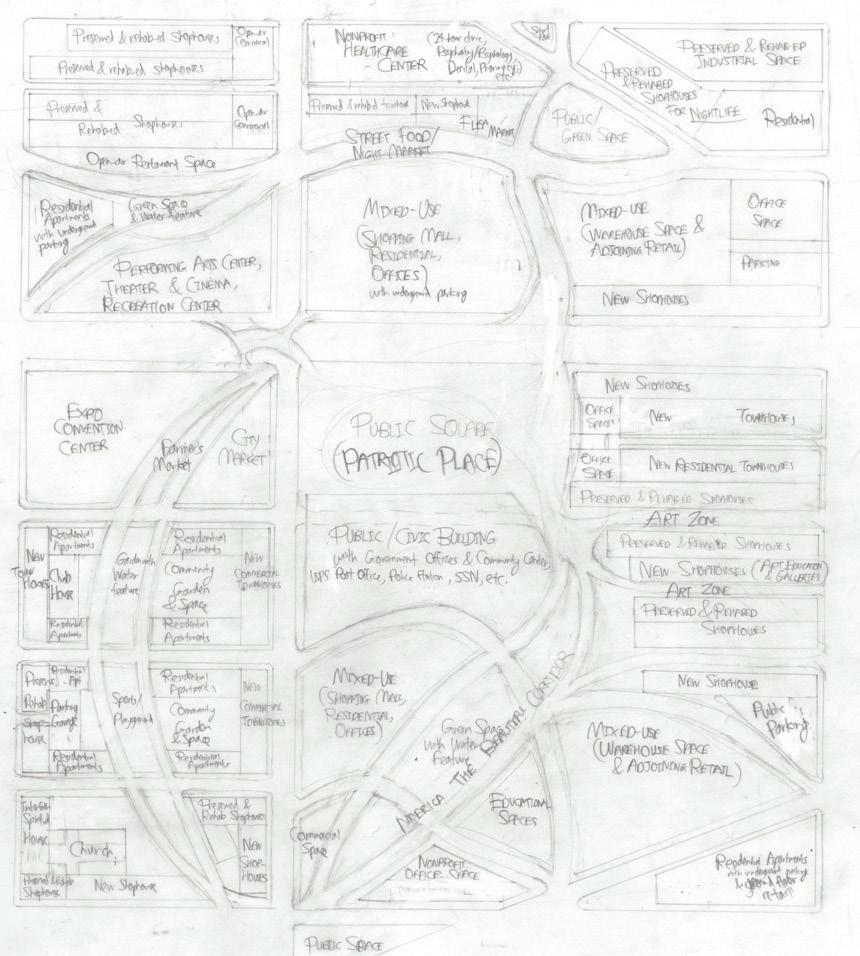 Preserved & rehabed Shophouses
Preserved & rehabed Shophouses
Open-air
NONPROFIT
HEALTHCARE
CENTER
(24-hour clinic,
Psychiatry/Psychology,
Dental, Pharmacy,
etc.)
PRESERVED & REHABED
INDUSTRIAL SPACE
PRESERVED
& REHABED
SHOPHOUSES
FOR NIGHTLIFE
Residential
Preserved &
Rehabed Shophouses
Open-air
New Shophouse
FLEA MARKET
PUBLIC/
GREEN SPACE
STREET FOOD/
NIGHT MARKET
Open-air Restaurant Space
Residential
Apartments
with underground
parking
Green Space
& Water feature
PERFORMING ARTS CENTER,
THEATER & CINEMA,
RECREATION CENTER
MIXED-USE
(SHOPPING MALL,
RESIDENTIAL,
OFFICES)
with underground parking
MIXED-USE
(WAREHOUSE SPACE &
ADJOINING RETAIL)
OFFICE
SPACE
PARKING
NEW SHOPHOUSES
EXPO
CONVENTION
CENTER
Farmer's
Market
CITY
MARKET
PUBLIC SQUARE
(PATRIOTIC PLACE)
NEW SHOPHOUSES
OFFICE
SPACE
NEW TOWNHOUSES
OFFICE
SPACE
NEW RESIDENTIAL TOWNHOUSES
PRESERVED & REHABED SHOPHOUSES
ART ZONE
PRESERVED & REHABED SHOPHOUSES
NEW SHOPHOUSES (ART EDUCATION
& GALLERIES)
ART ZONE
PRESERVED & REHABED
SHOPHOUSES
PUBLIC/CIVIC BUILDING
with Government Offices & Community Center,
USPS Post Office, Police Station, SSN, etc.
NEW
TOWNHOUSES
Residential
Apartments
Club
House
Residential
Apartments
Garden with
Water
feature
Residential
Apartments
Community
Garden
& Space
Residential
Apartments
NEW
COMMERCIAL
TOWNHOUSES
Residential
Parking
Garage
Residential
Apartments
Sports/
Playground
Residential
Apartments
Community
Garden
& Space
Residential
Apartments
NEW
COMMERCIAL
TOWNHOUSES
MIXED-USE
(SHOPPING MALL,
RESIDENTIAL,
OFFICES)
Green Space
with Water
Feature
AMERICA THE BEAUTIFUL CORRIDOR
NEW SHOPHOUSE
Public
Parking
MIXED-USE
(WAREHOUSE SPACE
& ADJOINING RETAIL)
House
Church
New Shophouse
Preserved &
Rehab Shophouses
NEW
SHOP-
HOUSES
Commercial
Space
EDUCATIONAL
SPACES
NONPROFIT
OFFICE SPACE
Residential Apartments
with underground parking
& ground floor
retail
PUBLIC SPACE